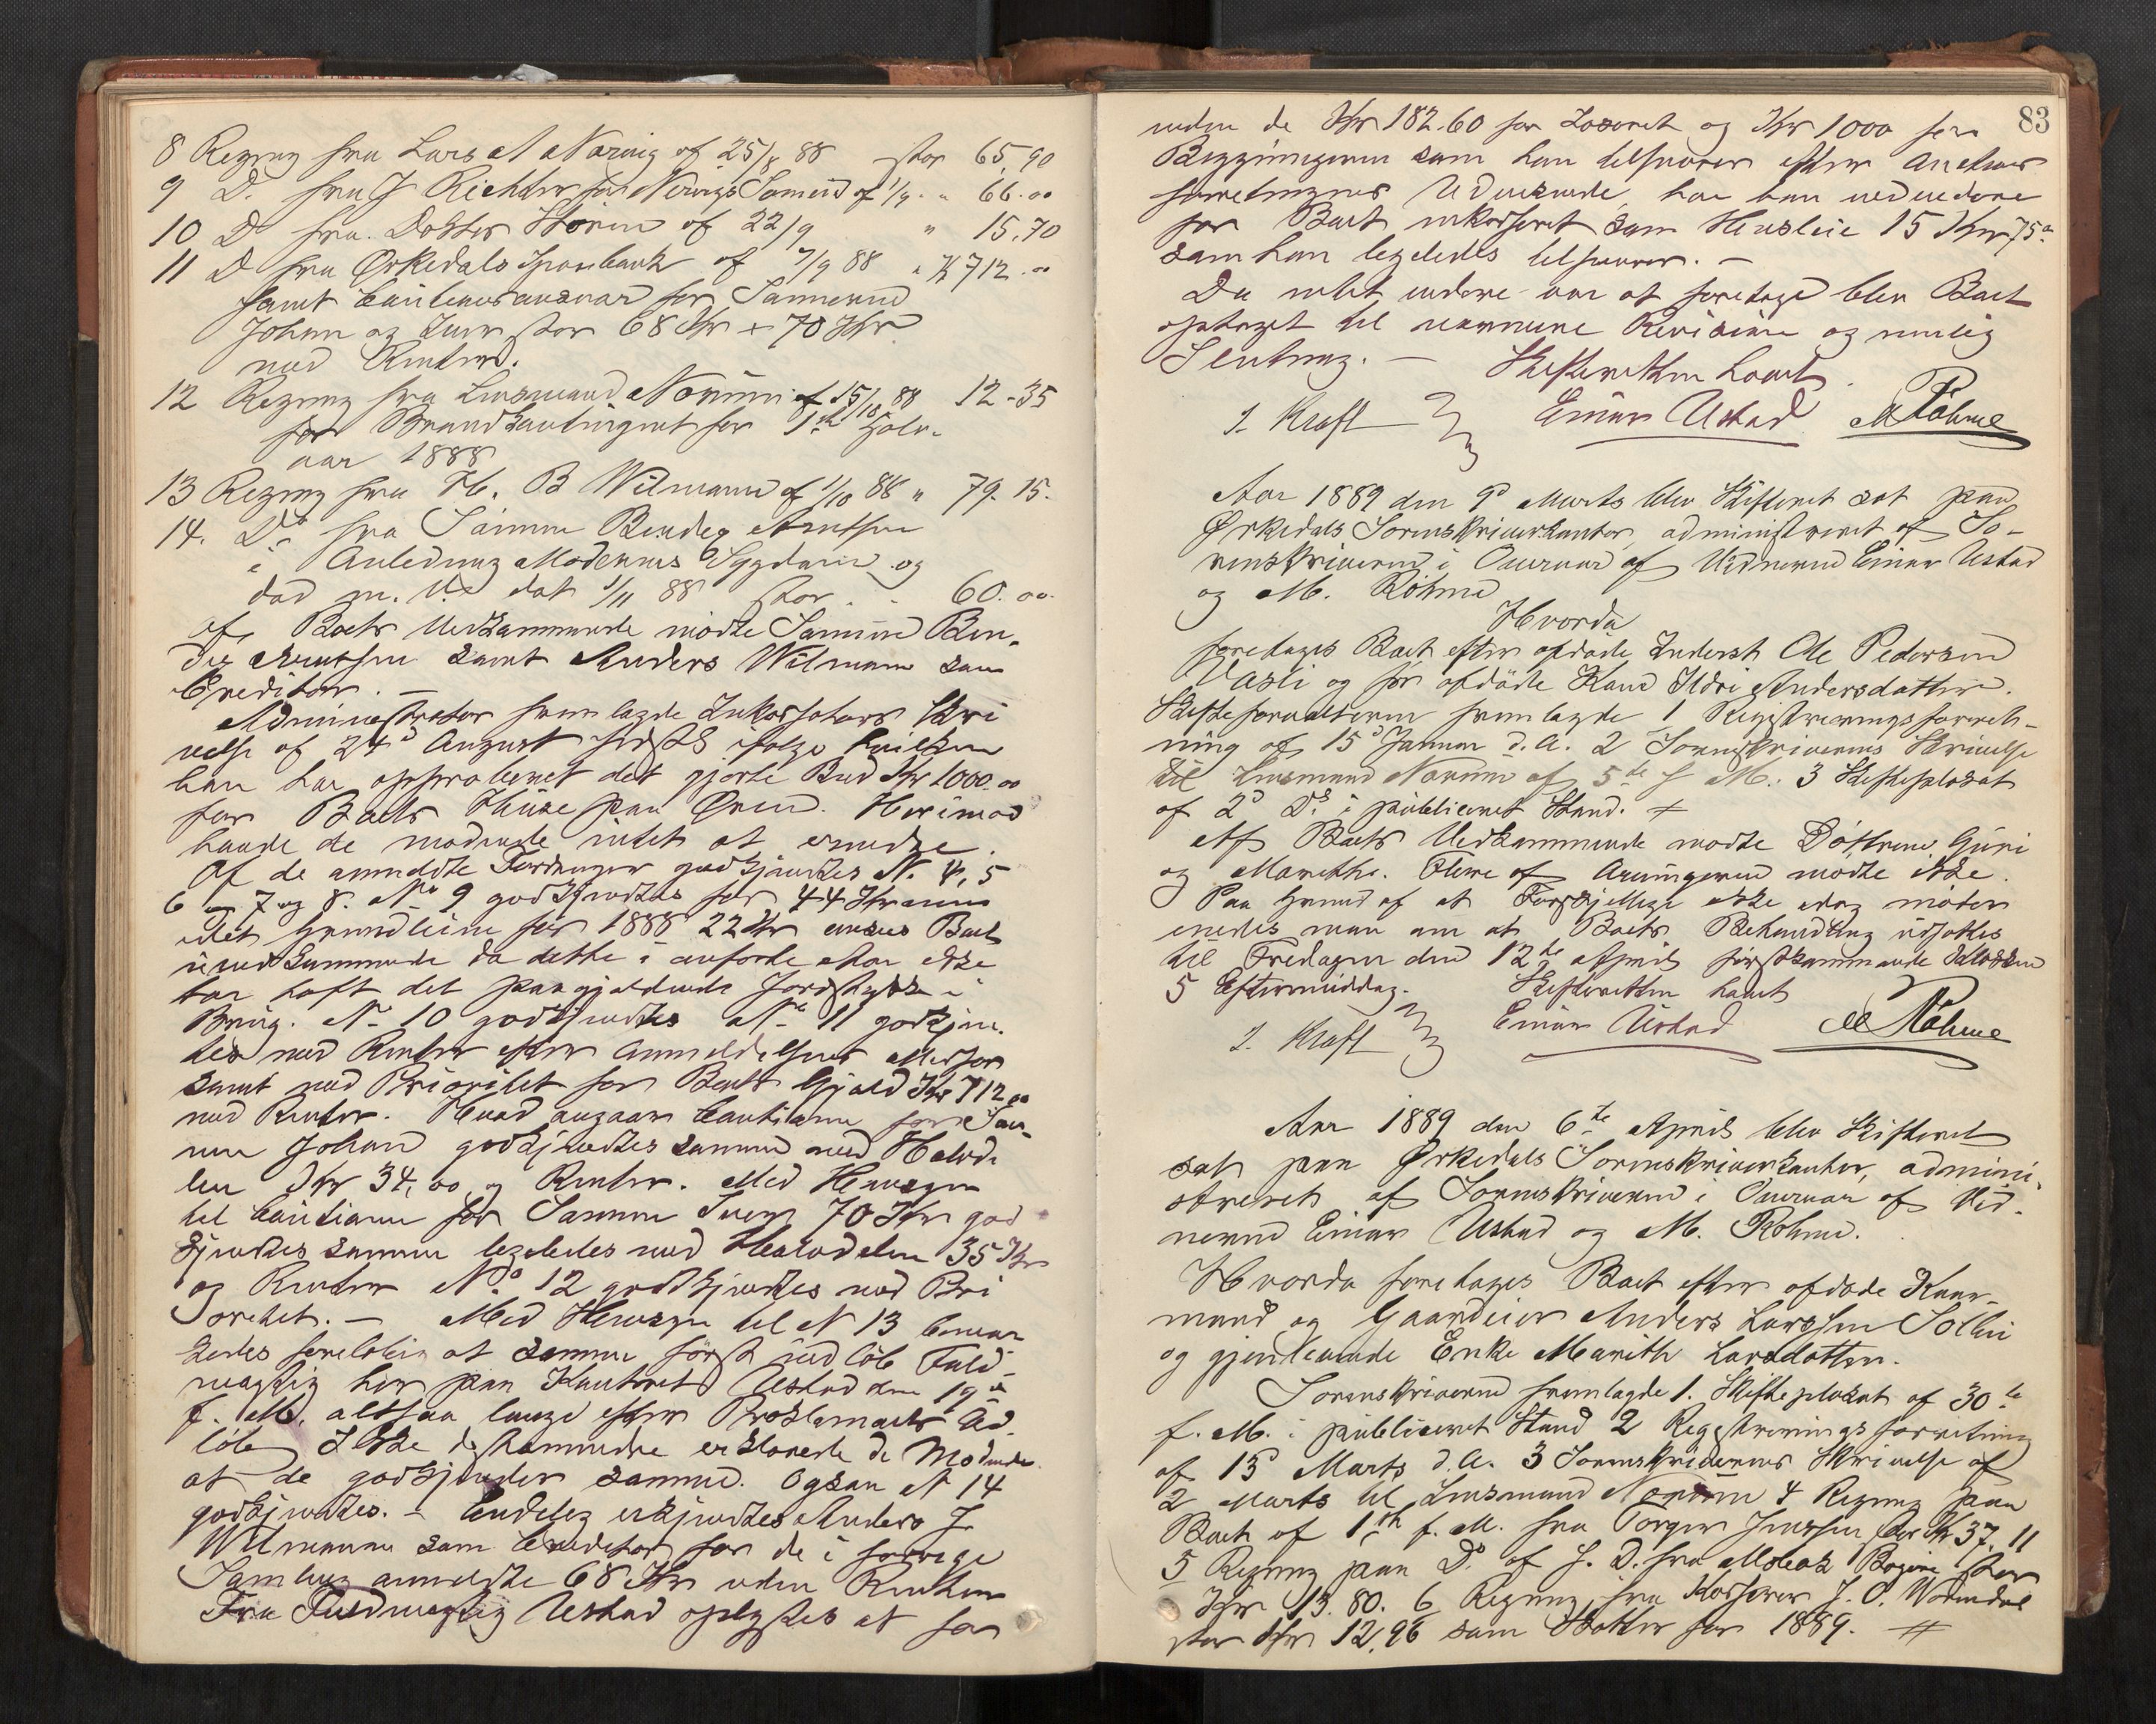 8 Regning fra Lars A Næraig af 25/8 88 stor 65,90
9 Do. fra J Richter for Nervigs Sameie af 1/9 " 66.00
10 Do fra Dokter Støren af 22/9 " 15,70
11 Do fra Ørkedals Sparebank af 7/9 88 " Kr 712.00
samt Cautionsansvar for Sønnerne
Johan og Iver stor 68 Kr + 70 Kr
med Renter.
12 Regning fra Lensmand Norum af 15/10 88 12-35
for Brandkontingent for 1ste Halv-
aar 1888
13 Regning fra H. B Wilmann af 1/10 88 " 79.15.
14. Do fra Sønnen Bendig Arntsen
i Anledning Moderens Sygdom og
død m. V. dat 1/11 88 stor 60.00
af Boets Vedkommende mødte Sønnen Ben-
dig Arntsen samt Anders Wilmann som
Creditor. —
Administrator fremlagde Inkassators Skri
velse af 24d August sidstl ifølge hvilken
han har approberet det gjorte Bud Kr 1000.00
for Boets Huse paa Øren. Herimod
havde de mødende intet at erindre.
Af de anmeldte Fordringer godkjendtes No. 4, 5
6 7 og 8. No 9 godkjendtes for 44 Kroner
idet Grundleien for 1888 22 Kr ansees Boet
uvedkommende da dette i anførte Aar ikke
har havt det paagjældende Jordstykke i
Brug. No 10 godkjendtes No 11 godkjen-
tes med Renter efter Anmeldelsens
samt med Prioritet for Boets Gjæld Kr 712.00
med Renter. Hvad angaar Cautionen for Søn-
nen Johan godkjendtes samme med Halvde
len Kr 34,00 og Renter. Med Hensyn
til Cautionen for Sønnen Iver 70 Kr god
kjendtes samme ligeledes med Halvdelen 35 Kr
og Renter No. 12 godkjendtes med Pri
oritet. — Med Hensyn til N 13 bemær
kedes foreløbig at samme først indløb Fuld-
mægtig her paa Kontoret Ustad den 19de
f. M. altsaa længe efter Proklamaets Ud-
løb Ikke destomindre erklærede de Mødende
at de godkjender samme. Ogsaa N 14
godkjendtes. - Endelig erkjendtes Anders J.
Wilmann som Creditor for de i forrige
Samling anmeldte 68 Kr uden Renter
Fra Fuldmægtig Ustad oplystes at for
83
uden de Kr 182.60 for Løsøret og Kr 1000 for
Bygningerne som han tilsvarer efter Auctions
forretningens Udvisende, har han vedvidere
for Boet inkasseret som Husleie 15 Kr 75 ø.
som han ligeledes tilsvarer. —
Da intet videre var at foretage blev Boet
optaget til nærmere Revision og mulig
Slutning. — Skifteretten hævet.
I. Kraft Einar Ustad M Røhme
Aar 1889 den 9d Marts blev Skifteret sat paa
Ørkedals Sorenskriverkontor, administreret af So-
renskriveren i Overvær af Vidnerne Einar Ustad
og M. Røhme
Hvorda
foretages Boet efter afdøde Inderst Ole Pedersen
Vasli og før afdøde Kone Ildri Andersdatter.
Skifteforvalteren fremlagde 1 Registreringsforret-
ning af 15d Januar d.A. 2 Sorenskriverens Skrivelse
til Lensmand Norum af 5te f M. 3 Skifteplakat
af 2d Ds i publiceret Stand. #
Af Boets Vedkommende mødte Døttrene Guri
og Marethe. Flere af Arvingerne mødte ikke.
Paa Grund af at Forskjellige ikke idag møder
enedes man om at Boets Behandling udsættes
til Fredagen den 12te April førstkommende Klokken
5 Eftermiddag. Skifteretten hævet
I. Kraft Einar Ustad M Røhme
Aar 1889 den 6te April blev Skifteret
sat paa Ørkedals Sorenskriverkontor, admini-
streret af Sorenskriveren i Overvær af Vid-
nerne Einar Ustad og M. Røhme.
Hvorda foretages Boet efter afdøde Kaar-
mand og Gaardeier Anders Larssen Sollie
og gjenlevende Enke Marith Larsdatter.
Sorenskriveren fremlagde 1. Skifteplakat af 30te
f. M. i publiceret Stand 2 Registreringsforretning
af 13d Marts d.A. 3 Sorenskriverens Skrivelse af
2 Marts til Lensmand Norum 4 Regning paa
Boet af 1ste f. M. fra Torger Jenssen stor Kr 37.11
5 Regning paa Do af s. D. fra stor
Kr 13.80. 6 Regning fra Kasserer J. O.
stor Kr 12,96 som Skatter for 1889. #